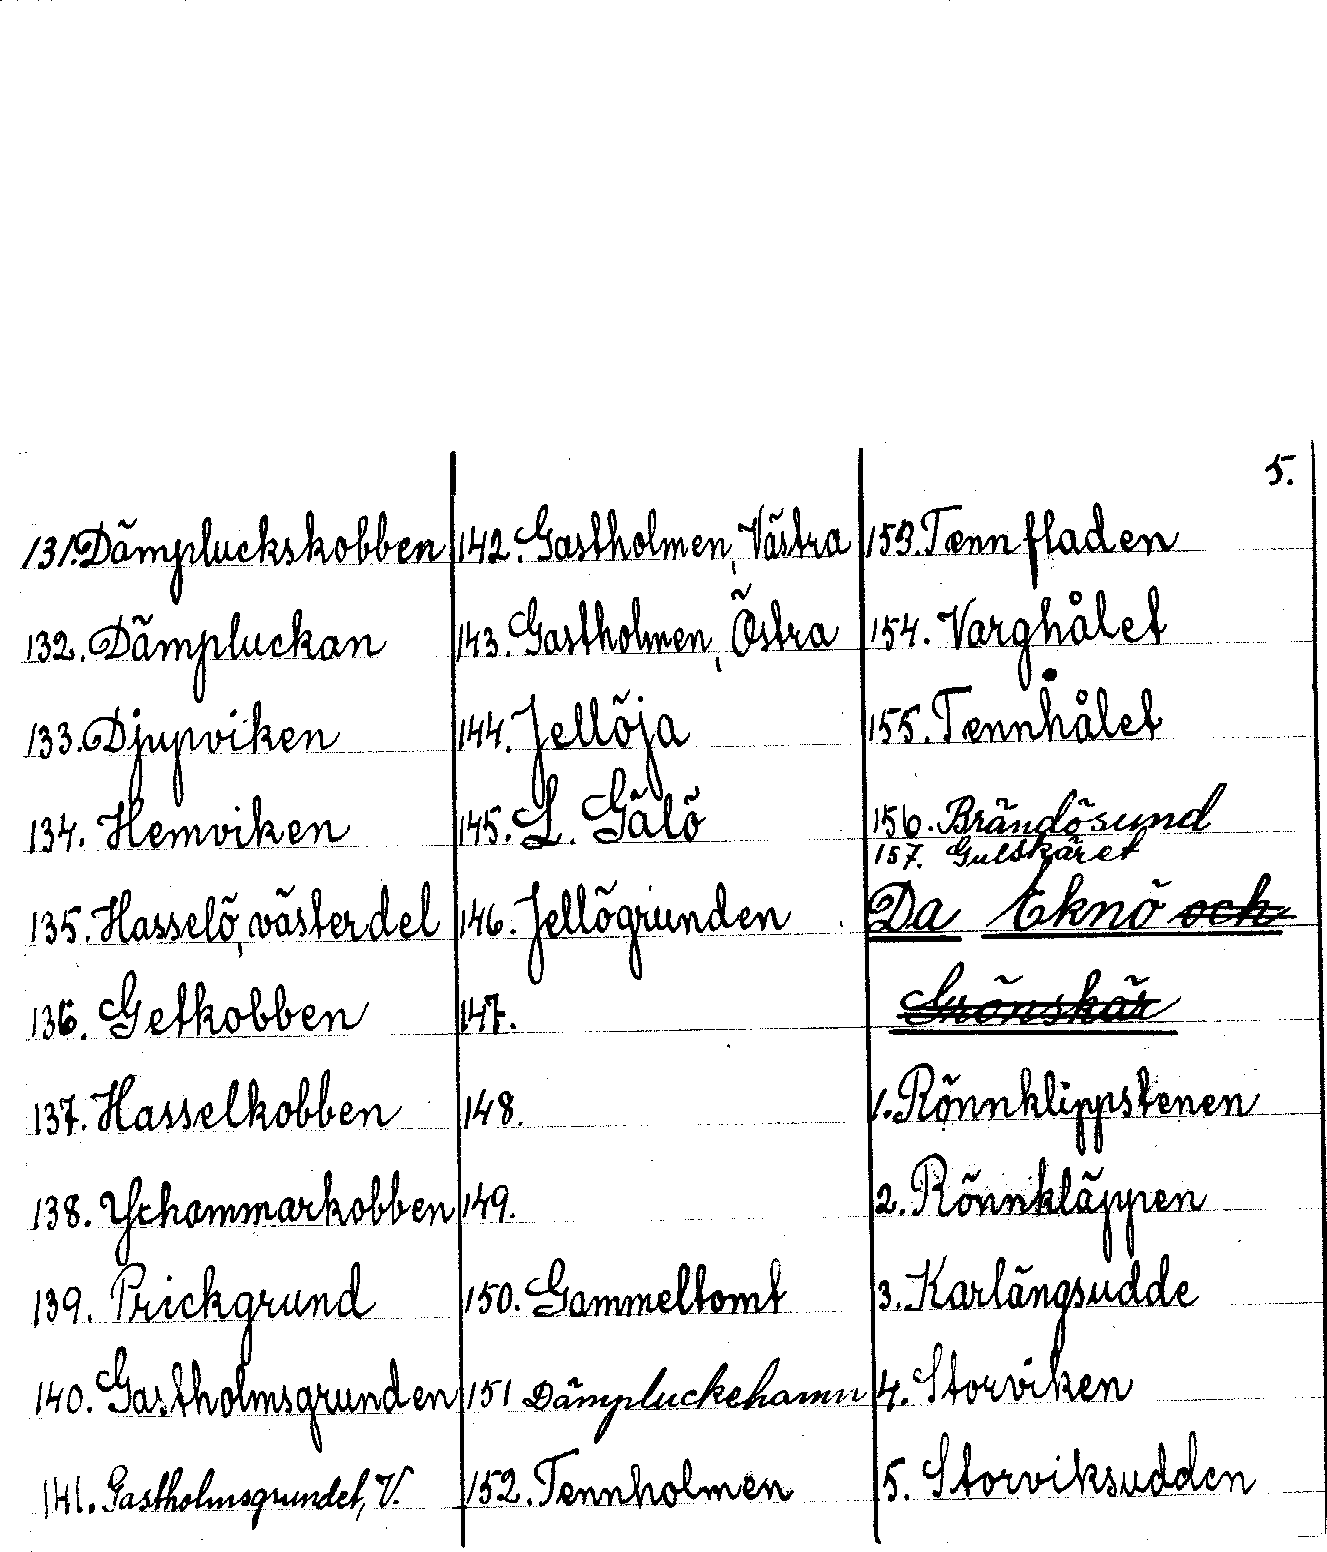 5.
131. Dämpluckskobben
132. Dämpluckan
133. Djupviken
134. Hemviken
135. Hasselö, västerdel
136. Getkobben
137. Hasselkobben
138. Ychammarkobben
139. Prickgrund
140. Gastholmsgrunden
141. Gastholmsgrundet, V.
142. Gastholmen, Västra
143. Gastholmen, Östra
144. Jellöja
145. L. Gälö
146. Jellögrunden
147.
148.
149.
150. Gammeltomt
151 Dämpluckehamn
152. Tennholmen
153. Tennfladen
154. Varghålet
155. Tennhålet
156. Brändösund
157. Gulskäret
Da Eknö och
Grönskär
1. Rönnklippstenen
2. Rönnkläppen
3. Karlängsudde
4. Storviken
5. Storviksudden